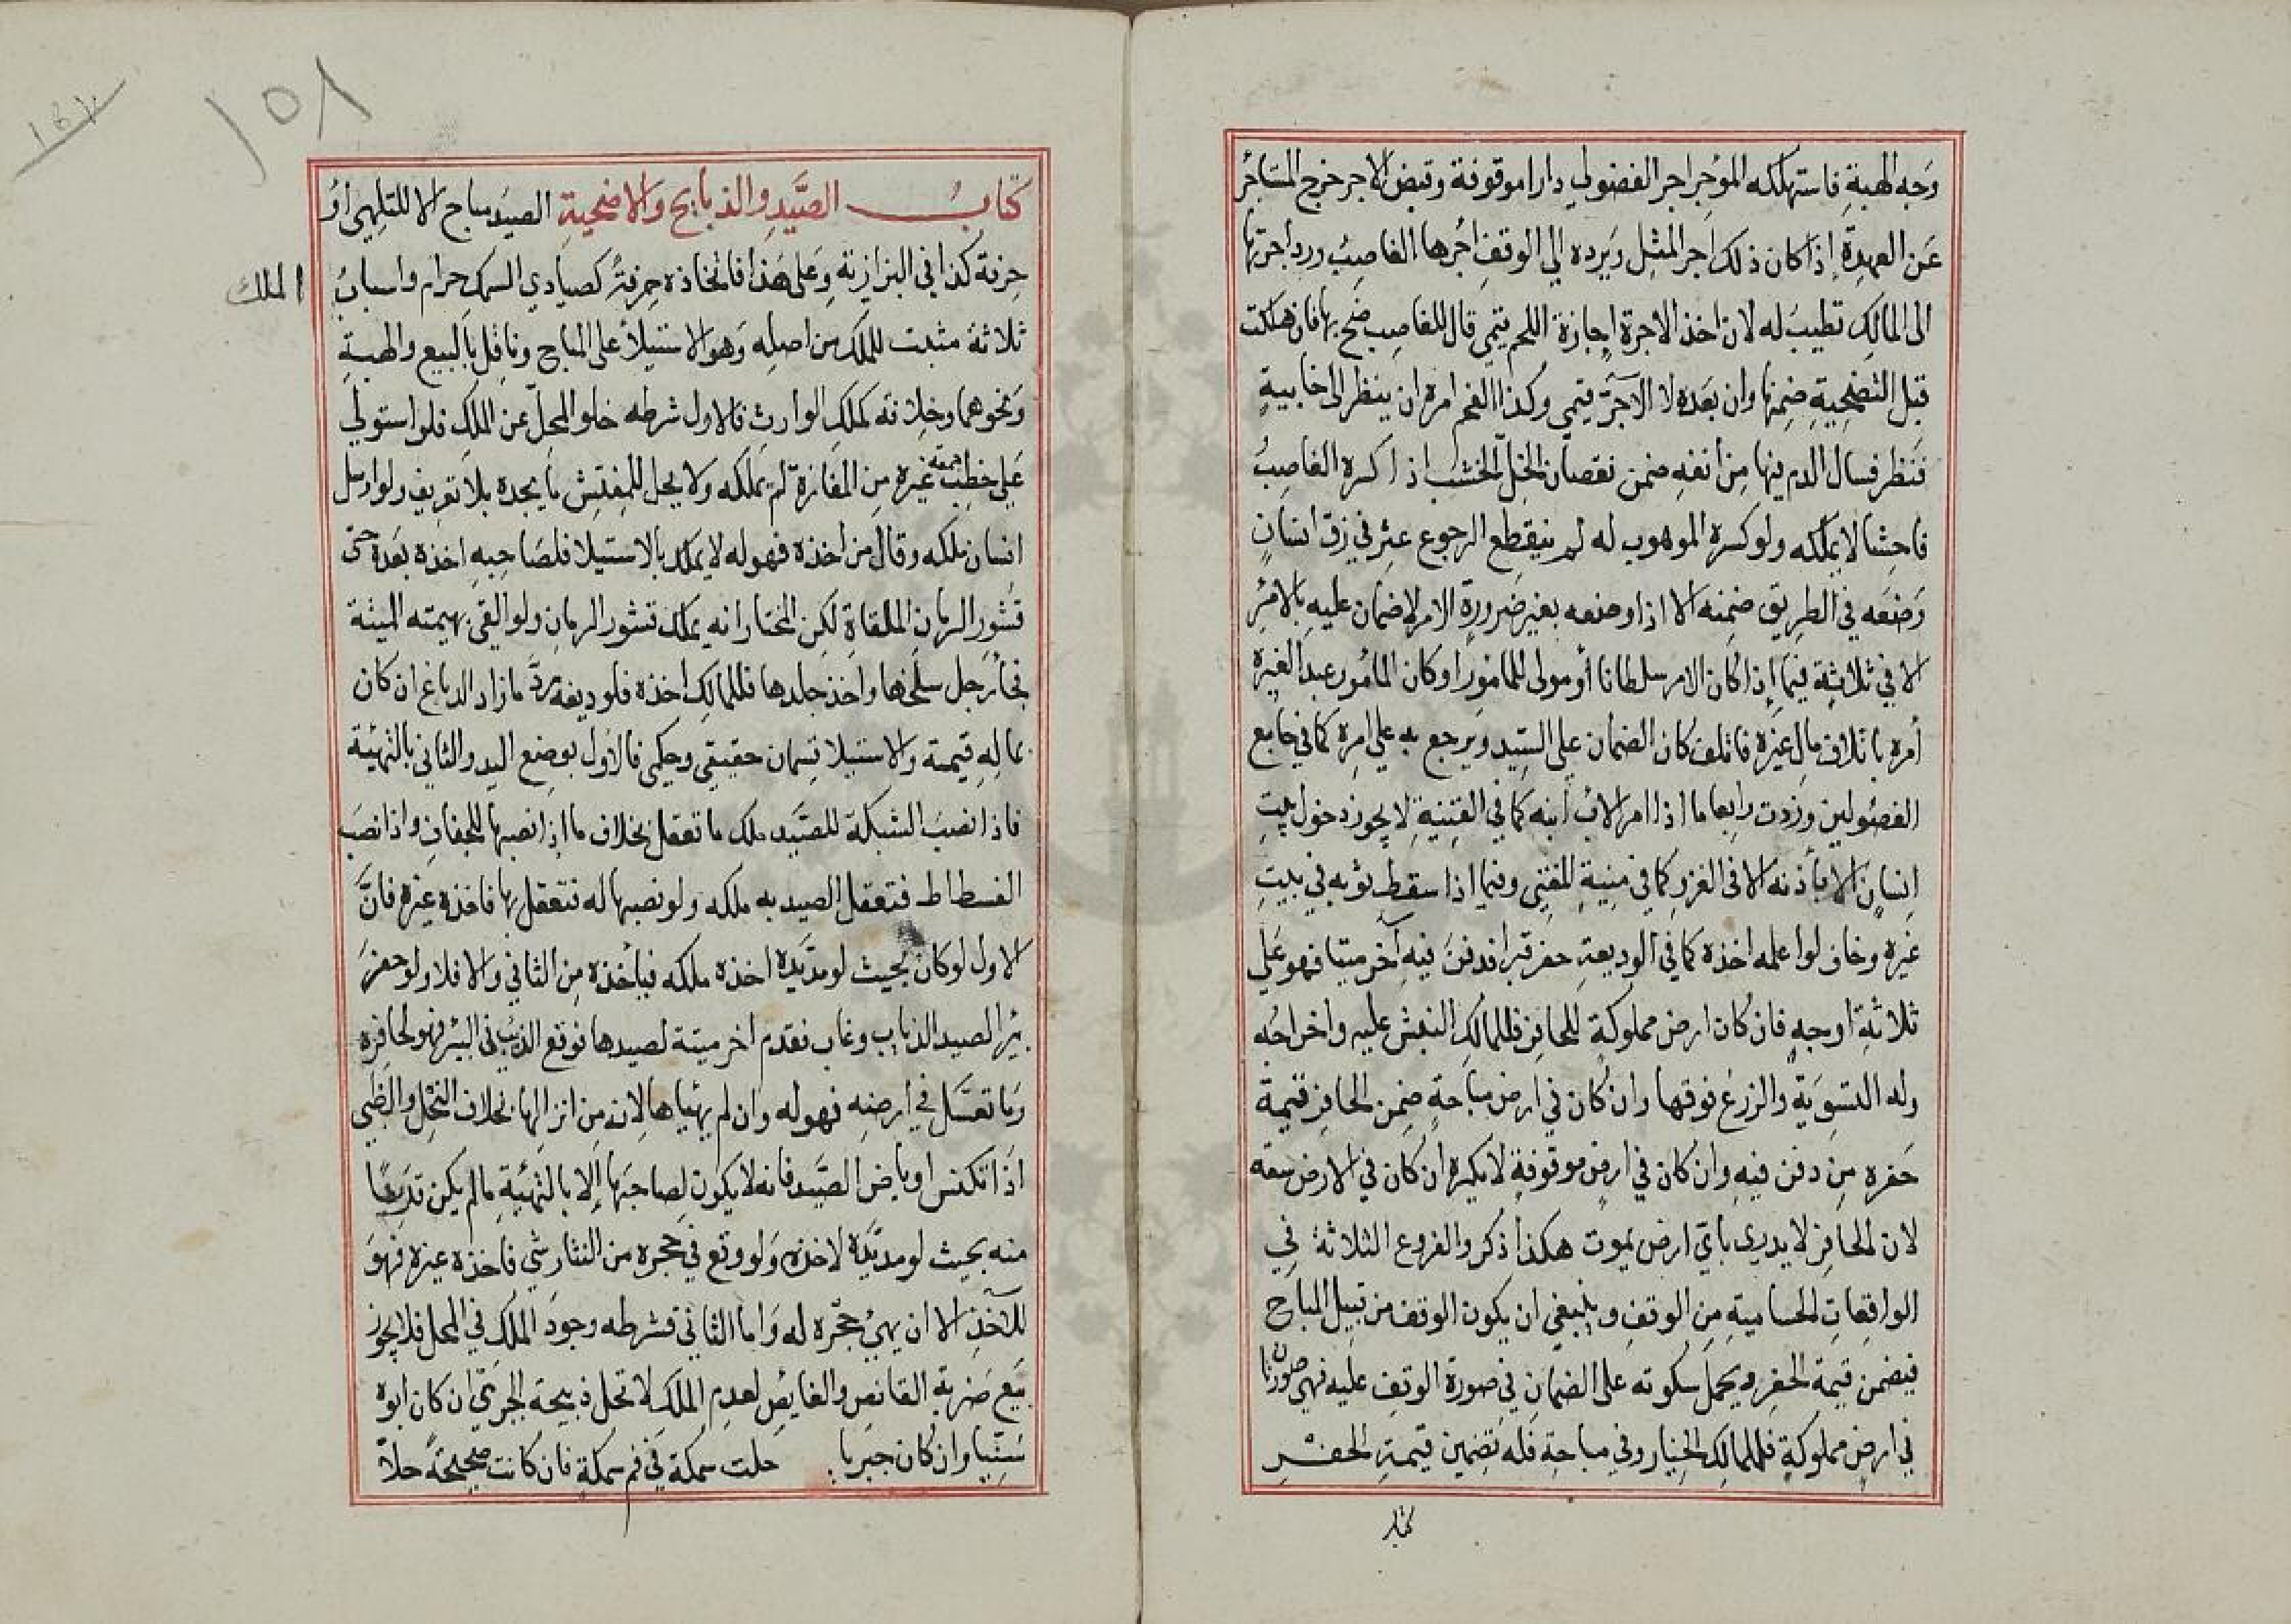 وجه الهبة فاستهلكه المؤجر اجر الفضولي دارا موقوفة وقبض الاجر خرج المستاجر
عن العهدة إذا كان ذلك اجر المثل ويرده الي الوقف اجرها الغاصب ورد اجرتها
الى المالك تطيب له لان اخذ الاجرة إجازة اللحم قيمي قال للغاصب ضح بها فان هلكت
قبل التضحية ضمنها وان بعده لا الآجر قيمي وكذا الفحم امره ان ينظر الى خابية
فنظر فسال الدم فيها من أنفه ضمن نقصان الخل الخشب اذا كسره الغاصب
فاحشا لا يملكه ولو كسره الموهوب له لم ينقطع الرجوع عثر في زق انسان
وضعه في الطريق ضمنه الا اذا وضعه بغير ضرورة الامر لا ضمان عليه بالامر
الا في ثلاثة فيما إذا كان الامر سلطانا أو مولى للمامور او كان المأمور عبد الغيره
أمره باتلاف مال غيره فاتلف كان الضمان علي السيد ويرجع به علي امره كما في جامع
الفصولين وزدت رابعا ما اذا امر الاب ابنه كما في القنية لا يجوز دخول بيت
إنسان الا بأذنه الا في الغزو كما في منية المفتي وفيما اذا سقط ثوبه في بيت
غيره وخاف لو اعلمه اخذه كما في الوديعة حفر قبرا فدفن فيه آخر ميتا فهو علي
ثلاثة اوجه فان كان ارض مملوكة للحافر فللمالك النبش عليه واخراجه
وله التسوية والزرع فوقها وان كان في ارض مباحة ضمن الحافر قيمة
حفره من دفن فيه وان كان في ارض موقوفة لا يكره ان كان في الارض سعة
لان الحافر لا يدرى باي ارض يموت هكذا ذكر والفروع الثلاثة في
الواقعات الحسامية من الوقف وينبغي ان يكون الوقف من قبيل المباح
فيضمن قيمة الحفر ويحمل سكوته على الضمان في صورة الوقف عليه فهي صورتان
في ارض مملوكة فللمالك الخيار وفي مباحة فله تضمين قيمة الحفر
كتاب
١٥٨
كتاب الصيد والذبايح والاضحية الصيد مباح الا للتلهي او
حرفة كذا في البزازية وعلى هذا فاتخاذه حرفة كصيادي السمك حرام واسباب
الملك
ثلاثة مثبت للملك من اصله وهو الاستيلأ على المباح وناقل بالبيع والهبة
ونحوهما وخلافه كملك الوارث فالاول شرطه خلو المحل عن الملك فلو استولي
علي حطب جمعه غيره من المفازة لم يملكه ولا يحل للمفتش ما يجده بلا تعريف ولو ارسل
انسان ملكه وقال من اخذه فهو له لا يملك بالاستيلا فلصاحبه اخذه بعده حتى
قشور الرمان الملقاة لكن المختار انه يملك قشور الرمان ولو القى بهيمته الميتة
فجأ رجل سلخها واخذ جلدها فللمالك اخذه فلو دبغه رد ما زاد الدباغ ان كان
بماله قيمة والاستيلا قسمان حقيقي وحكمي فالاول بوضع اليد والثاني بالتهيئة
فاذا نصب الشبكة للصيد ملك ما تعقل بخلاف ما إذا نصبها للجفاف واذا نصب
الفسطاط فتعقل الصيد به ملكه ولو نصبها له فتعقل بها فاخذه غيره فان
الاول لو كان بحيث لو مد يده اخذه ملكه فيأخذه من الثاني والا فلا ولو حفر
بئرا لصيد الذياب وغاب فقدم اخر ميتة لصيدها فوقع الذيب في البئر فهو لحافره
وما تعسل في ارضه فهو له وان لم يهئياها لانه من انزالها بخلاف النحل والظبي
اذا تكنس او باض الصيد فانه لا يكون لصاحبها إلا بالتهئية مالم يكن قريبا
منه بحيث لو مد يده لاخذه ولو وقع في حجره من النثار شي فاخذه غيره فهو
للآخذ الا ان يهيئ حجره له واما الثاني فشرطه وجود الملك في المحل فلا يجوز
بيع ضربة القانص والغايص لعدم الملك لا تحل ذبيحة الجبري ان كان ابوه
سنيا وان كان جبريا حلت سمكة في فم سمكة فان كانت صحيحة حلا